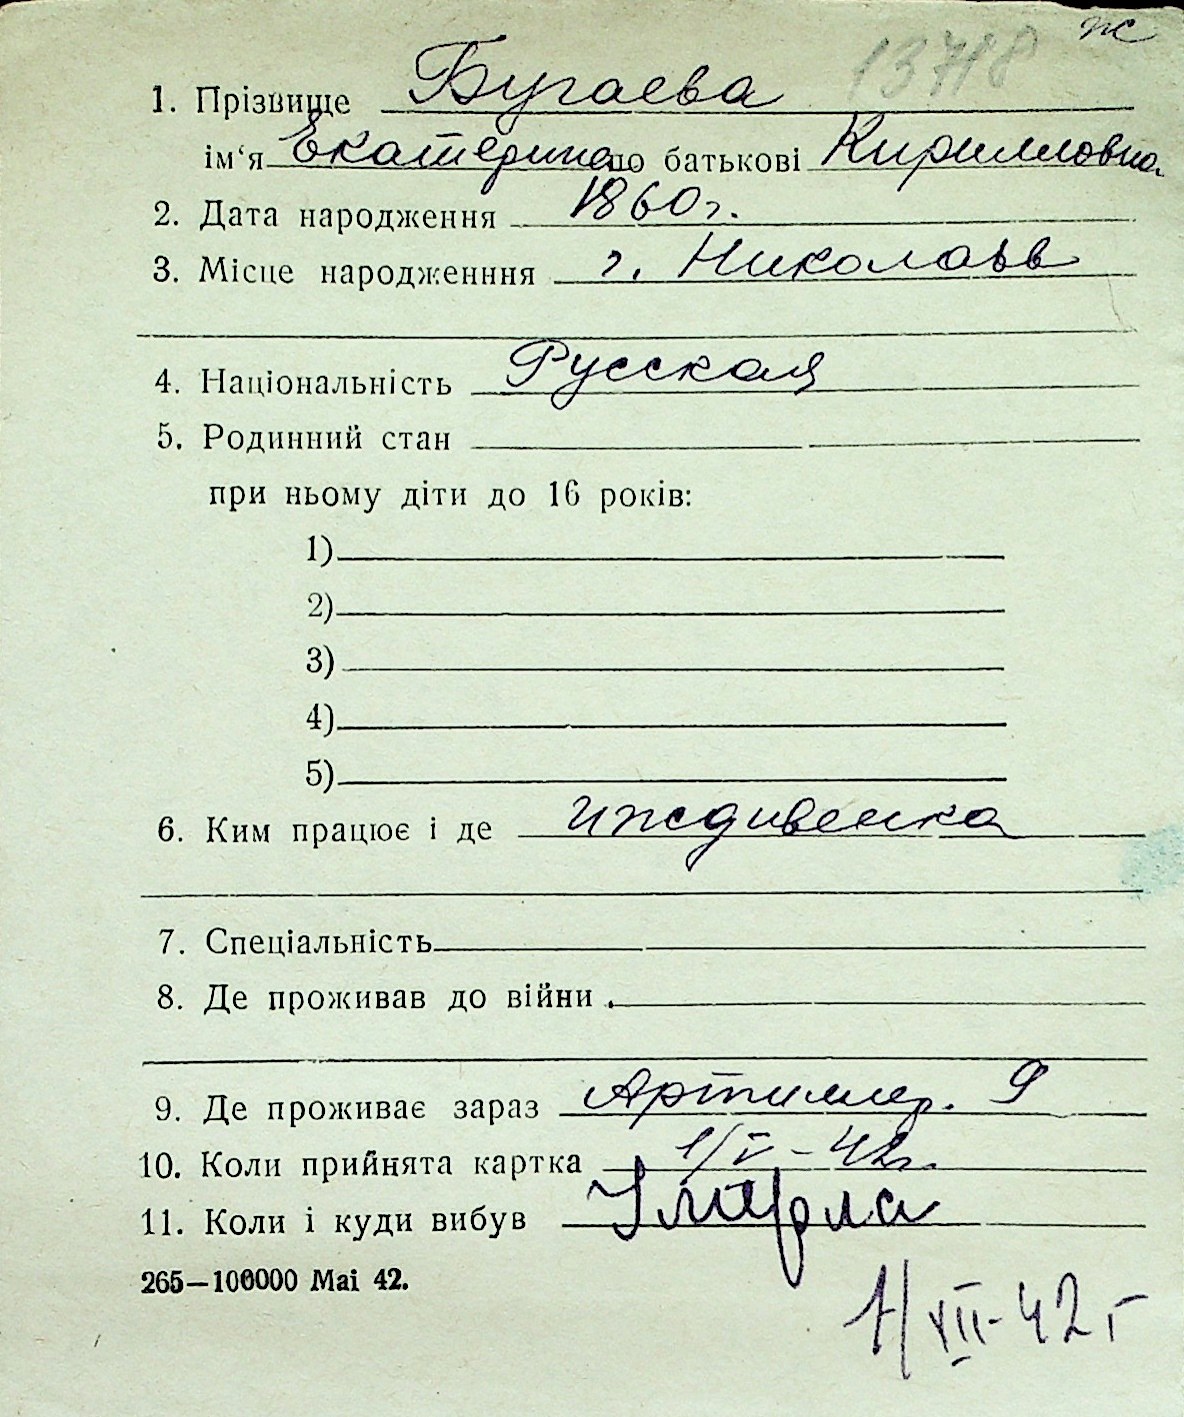 ж
13718
1. Прізвище Бугаева
ім‘я Екатерина по батькові Кирилловна
2. Дата народження 1860 г.
3. Місце народженння г. Николаѣв
4. Національність Русская
5. Родинний стан
при ньому діти до 16 років:
1)
2)
3)
4)
5)
6. Ким працює і де иждивенка
7. Спеціальність
8. Де проживав до війни
9. Де проживає зараз Артиллер. 9
10. Коли прийнята картка 1/V-42г.
11. Коли і куди вибув Умерла
265—100000 Mai 42.
1/VII-42 г